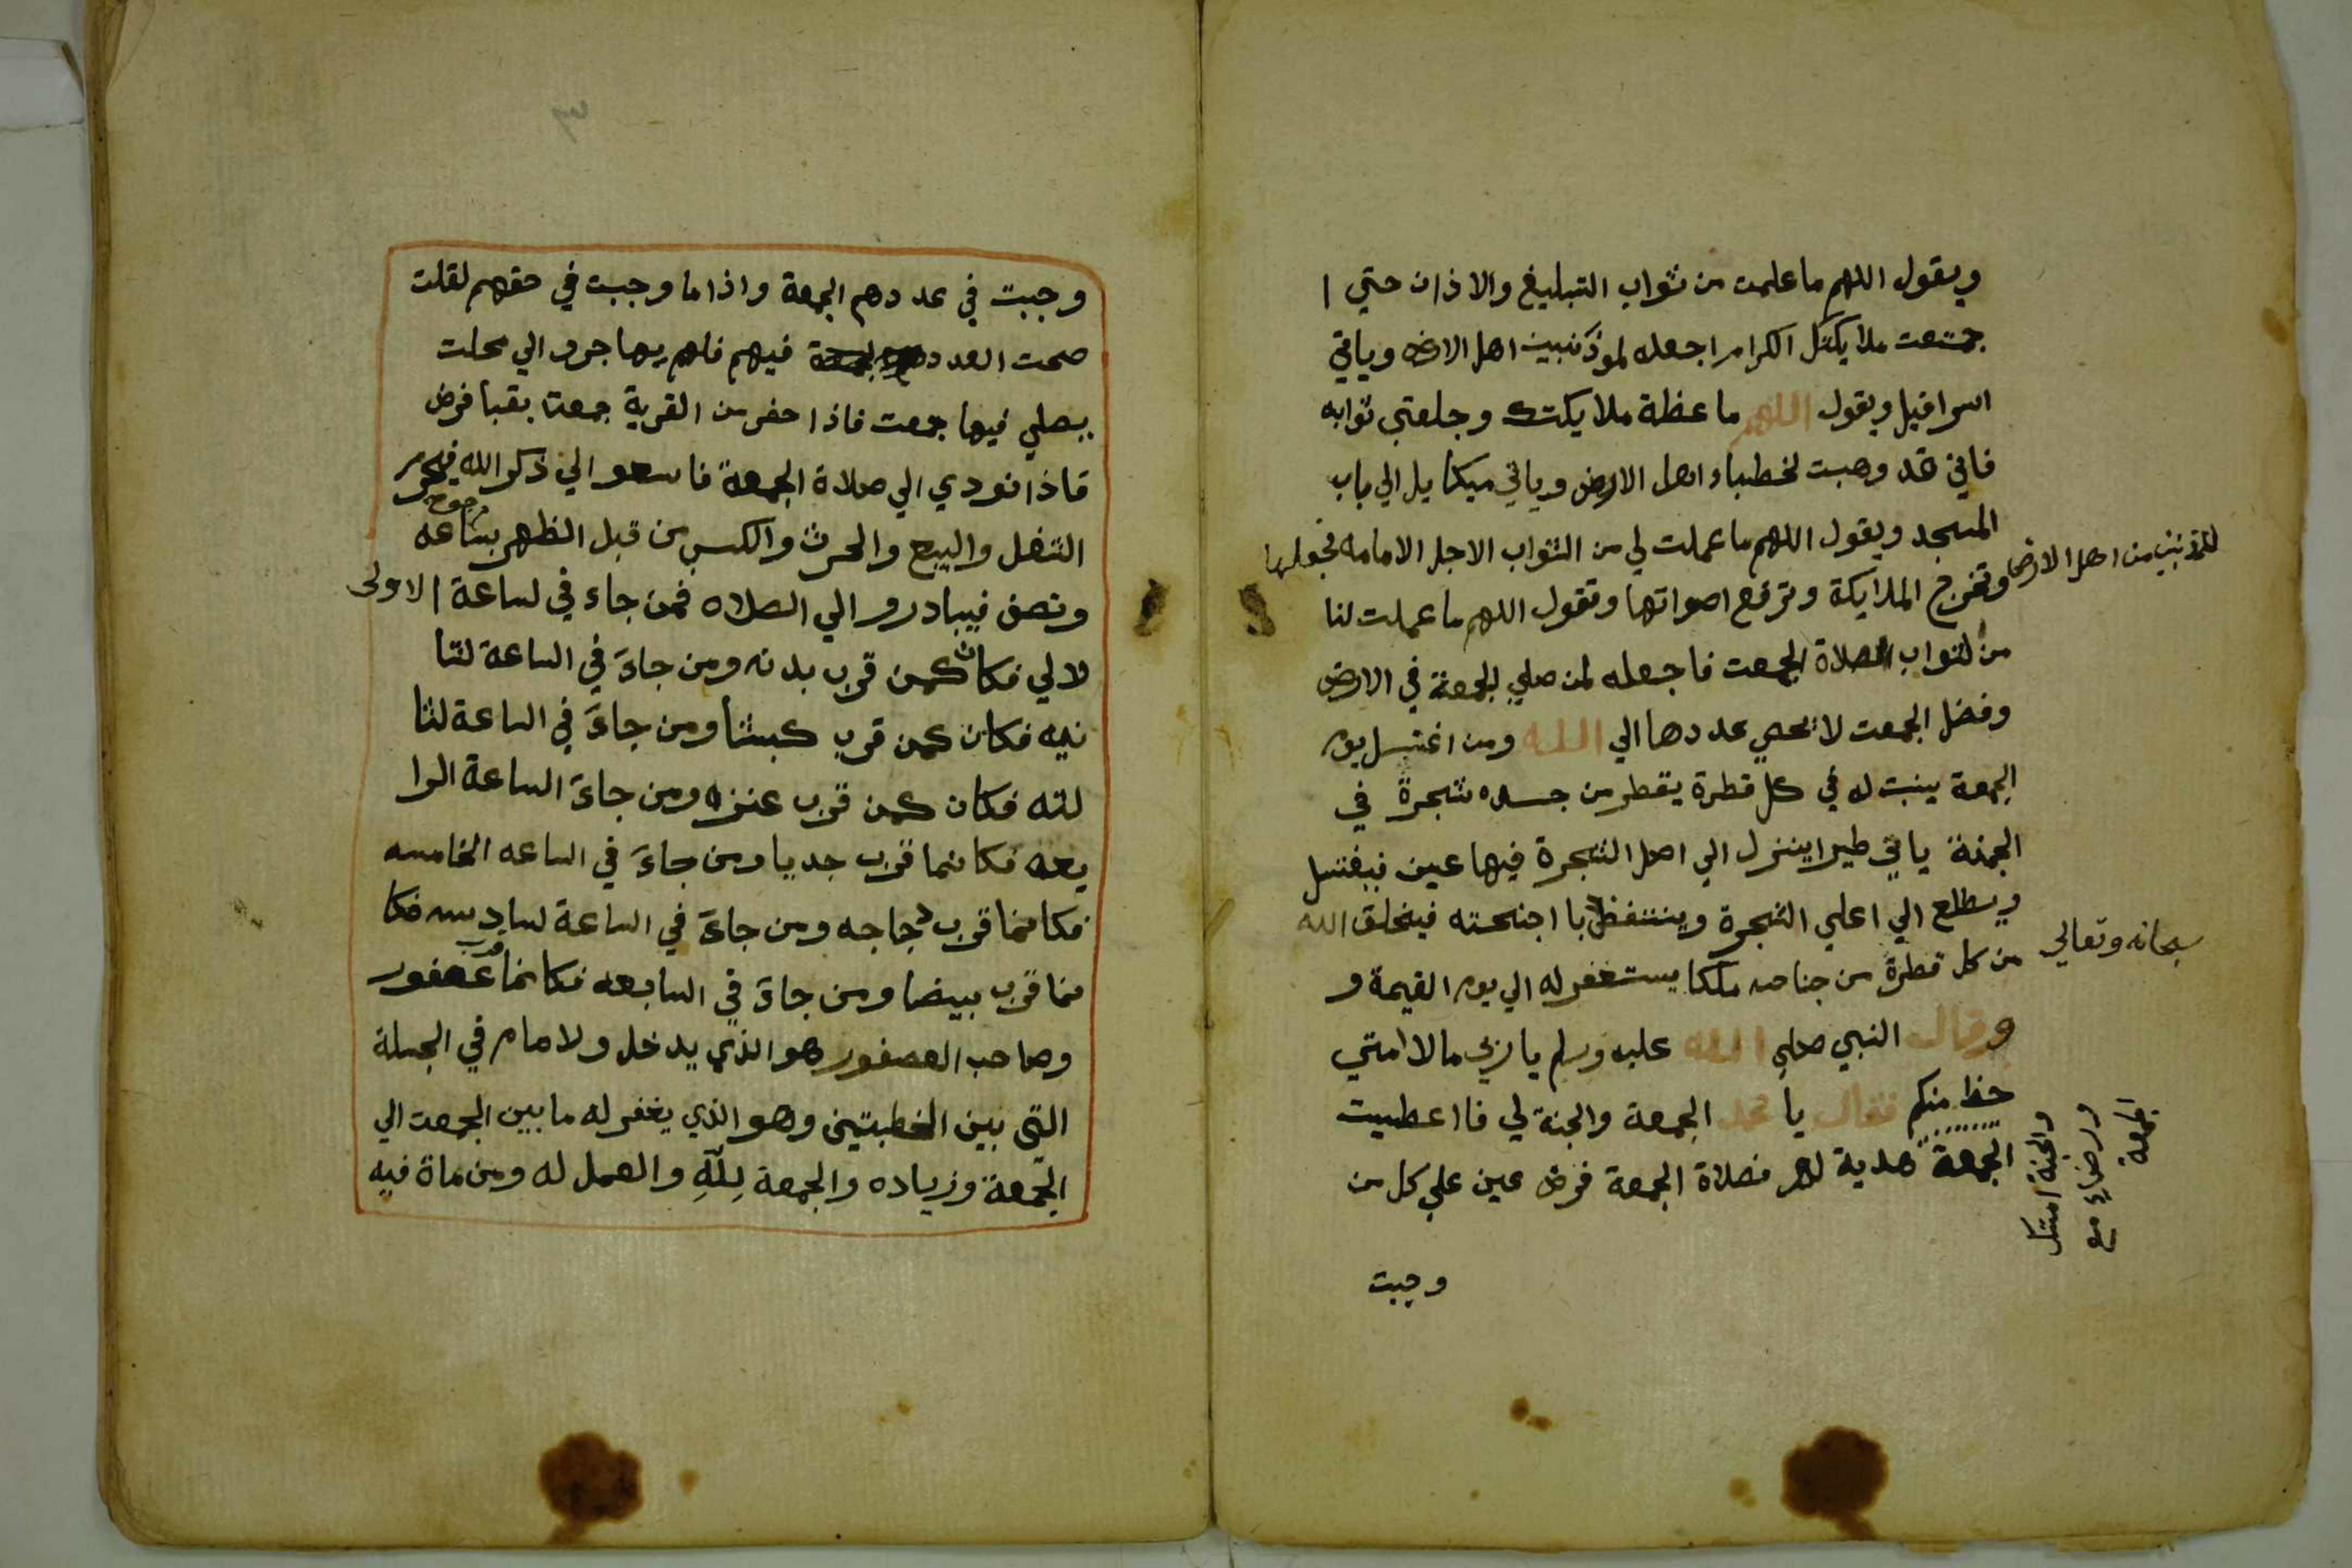 ويقول اللهم ما علمت من ثواب التبليغ والاذان حتي ا
جمتعت ملايكتك الكرام اجعله لموذنبين اهل الارض وياتي
اسرافيل ويقول اللهم ما عظة ملايكتك وجلعتي ثوابه
فاني قد وهبت لخطباء اهل الارض وياتي ميكايل الي باب
المسجد ويقول اللهم ما عملت لي من الثواب الاجل الامامه فجعلها
للمذنبين من اهل الارض
وتخرج الملايكة وترفع اصواتها وتقول اللهم ما عملت لنا
من لثواب الصلاة الجمعت فاجعله لمن صلي الجمعة في الارض
وفضل الجمعت لا يحصي عددها الي الله ومن اغتسل يوم
الجمعة ينبت له في كل قطرة يقطر من جسده شجرة في
الجنة ياتي طير اينزل الي اصل الشجرة فيها عين فيغتسل
ويطلع الي اعلي الشجرة وينتفظ با اجنحته فيخلق الله
سبحانه وتعالي
من كل قطرة من جناحه ملكا يستغفر له الي يوم القيمة و
وقال النبي صلي الله عليه وسلم يا ربي ما لا امتي
حظ منكم فقال يا محمد الجمعة والجنة لي فا اعطيت
الجمعة هدية لهم فصلاة الجمعة فرض عين علي كل من
والجنة
الجمعة
وجبت
وجبت في عددهم الجمعة واذا ما وجبت في حقهم لقلت
صحت العدد فيهم فلهم يهاجرو الي محلت
يبصلي فيها جمعت فاذا حفر من القرية جمعتا بقبا فرض
فاذا نودي الي صلاة الجمعة فاسعو الي ذكر الله فيحرم
التنفل والبيع والحرث والكسب من قبل الظهر بساعه
ونصف فيبادرو الي الصلاه فمن جاء في لساعة الاولى
لا لي فكان كمن قرب بدنه ومن جاءَ في الساعة لثا
نيه فكان كمن قرب كبشا ومن جاءَ في الساعة لثا
لثه فكان كمن قرب عنزه ومن جاءَ الساعة الرا
بعه فكانما قرب جديا ومن جاءَ في الساعه الخامسه
فكانما قرب دجاجه ومن جاءَ في الساعة لسادسه فكا
نما قرب بيضا ومن جاءَ في السابعه فكانما قرب عصفور
وصاحب العصفور هو الذي يدخل ولامام في الجسلة
التي بين الخطبتين وهو الذي يغفر له ما بين الجمعت الي
الجمعة وزياده والجمعة لِلّهِ والعمل له ومن ماة فيه